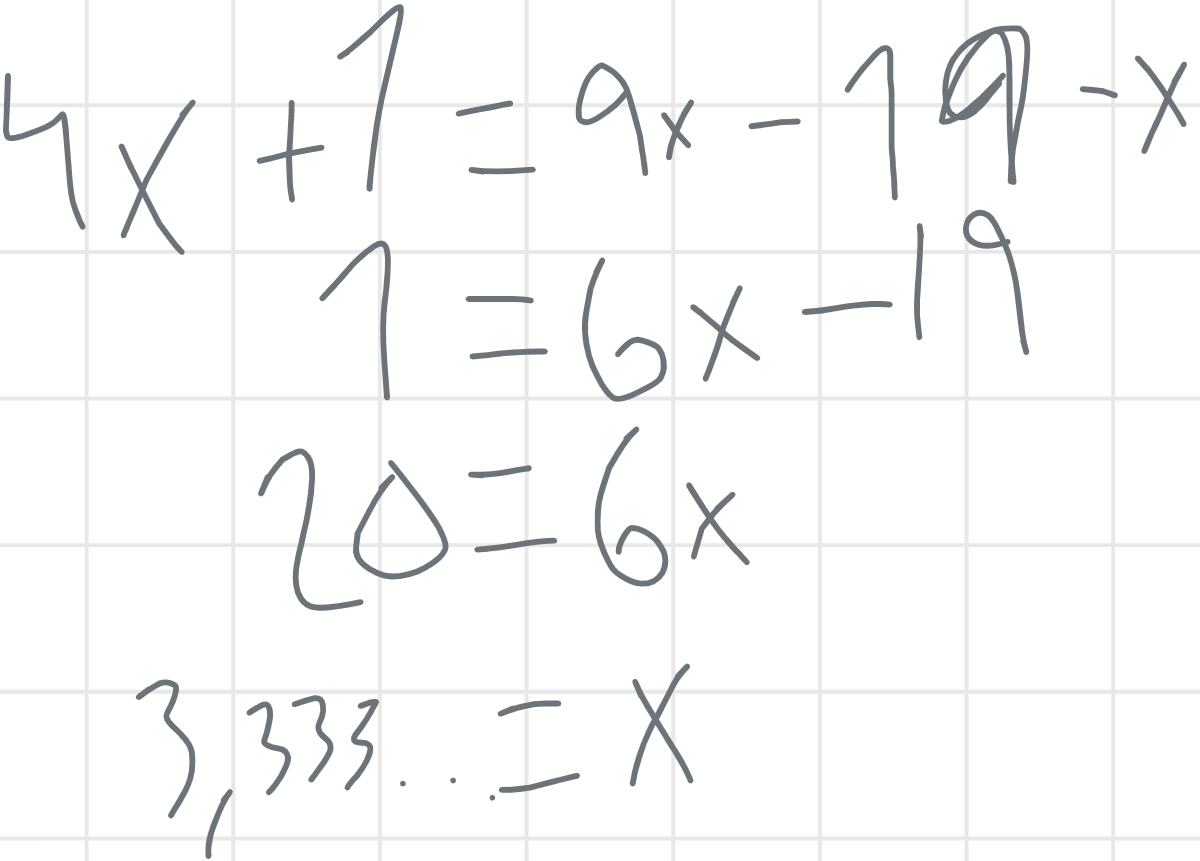 4x + 1 = 9x - 19 - x
1 = 6x - 19
20 = 6x
3,333... = x